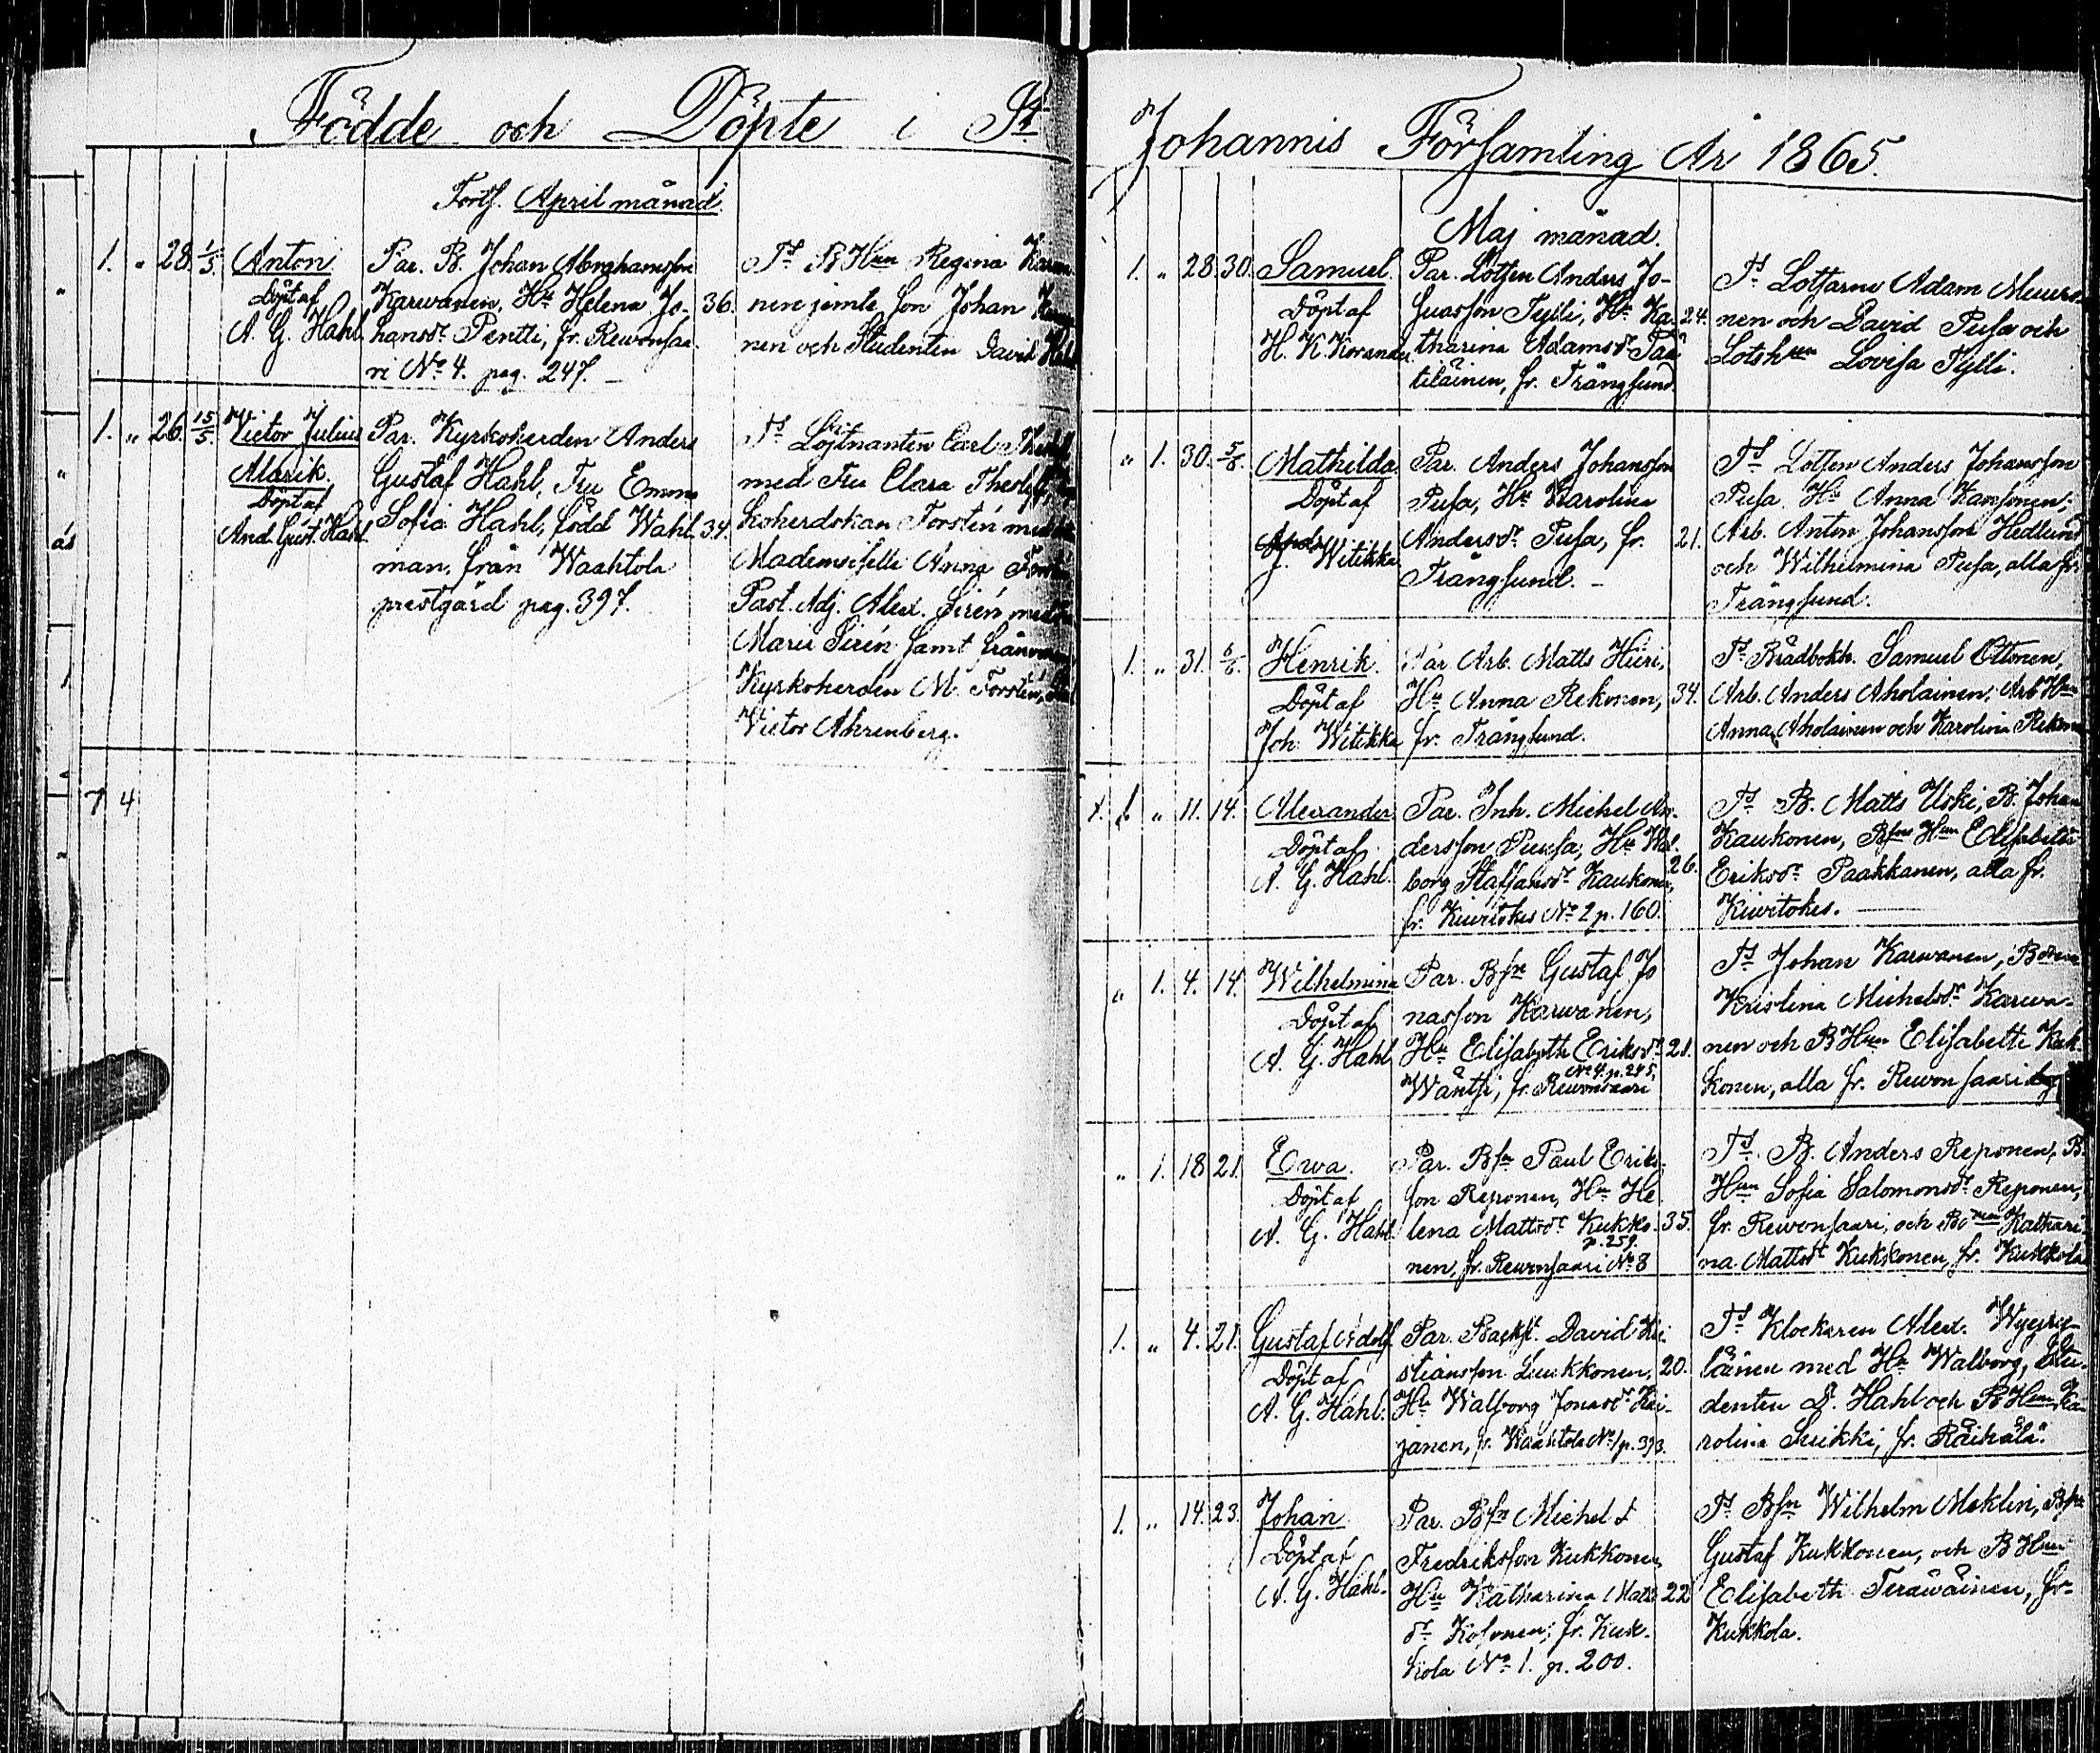 Födde och Döpte i St
Forts. April månad.
1. " 28. 1/5. Anton
Döpt af
A. G. Hahl.
Par. B. Johan Abrahamsson
Karwanen, Hu Helena Jo-
hansdr Pentti, fr. Rewonsaa-
ri No 4. pag. 247.
36.
Ts BHun Regina
nen jemte son Johan
nen och Studenten David
1. " 26. 15/5. Victor Julius
Alarik.
Döpt af
And. Gust. Hahl.
Par. Kyrkoherden Anders
Gustaf Hahl, Fru Emma
Sofia Hahl, född Wahl-
man, från Waahtola
prestgård pag. 397.
34.
Ts Löjtnanten Carl
med Fru Clara
koherdskan Forstén
Mademoiselle Anna
Past. Adj. Alex. Sirén
Marie Sirén samt
Kyrkoherden M. Forstén,
Victor Ahrenberg.
7 4
Johannis Församling År 1865.
Maj månad.
1. " 28. 30. Samuel.
Döpt af
H. K. Koranen.
Par. Lotsen Anders Jo-
suasson Tylli, Hu Ka-
tharina Adamsdr Pää-
tiläinen, fr. Trångsund.
24.
Ts Lotsarne Adam
nen och David Pusa och
Lotshun Lovisa Tylli.
" 1. 30. 5/6. Mathilda
Döpt af
J. Witikka
Par. Anders Johansson
Pusa, Hu Karolina
Andersdr Pusa, fr.
Trångsund.
21.
Ts Lotsen Anders Johansson
Pusa Hu Anna Kansonen;
Arb. Anton Johansson Hedlund
och Wilhelmina Pusa, alla fr.
Trångsund.
1. " 31. 6/6. Henrik.
Döpt af
Joh. Witikka
Par Arb. Matts Hiiri,
Hu Anna Rekonen,
fr. Trångsund.
34.
Ts Samuel Ottonen,
Arb. Anders Aholainen, Arb Hun
Anna Aholainen och Karolina
1. 1. " 11. 14. Alexander.
Döpt af
A. G. Hahl.
Par. Inh. Michel An-
dersson Puusa, Hu Wal-
borg Staffansdr Kaukonen,
fr. Kiuritokes No 2 p. 160.
26.
Ts B. Matts Uski, B. Johan
Kaukonen, Bfns Hun Elisabeth
Eriksdr Paakkanen, alla fr.
Kiuritokes.
" 1. 4. 14. Wilhelmina
Döpt af
A. G. Hahl
Par. Bfn Gustaf Jo
nasson Karwanen,
Hu Elisabeth Eriksdr
No 4. p. 245,
Wäntsi, fr. Rewonsaari
21.
Ts Johan Karwanen,
Kristina Michelsdr Karwa-
nen och BHun Elisabeth Kuk-
konen, alla fr. Rewonsaari
" 1. 18 21. Ewa.
Döpt af
A. G. Hahl
Par. Bfn Paul Eriks-
son Reponen, Hu He-
lena Mattsdr Kukko-
p. 259.
nen, fr. Rewonsaari No 8
35.
Ts. B. Anders Reponen, B.
Hun Sofia Salomonsdr Reponen,
fr. Rewonsaari, och Kathari-
na Mattsdr Kukkonen, fr. Kukkola
1. " 4. 21. Gustaf Adolf
Döpt af
A. G. Hahl.
Par. Backst. David Kri-
stiansson Luukkonen,
Hu Walborg Jonasdr Kai-
janen, fr. Waahtola No 1 p. 393.
20.
Ts Klockaren Alex.
läinen med Hu Walborg, Stu-
denten D. Hahl och BHun Ka-
rolina Suikki, fr. Räihälä.
1. " 14. 23. Johan
Döpt af
A. G. Hahl.
Par. Bfn Michel
Fredriksson Kukkonen
Hu Katharina Matts-
dr Kosonen, fr. Kuk-
kola No 1. p. 200.
22
Ts Bfn Wilhelm Meklin, Bfn
Gustaf Kukkonen, och BHun
Elisabeth Teräwäinen, fr.
Kukkola.